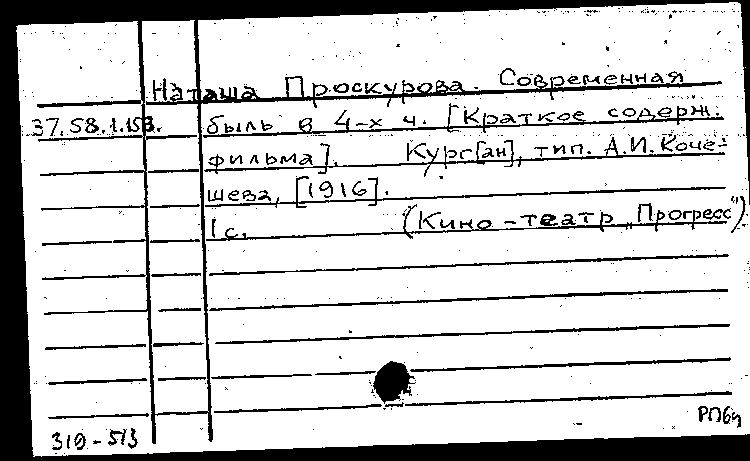 Наташа Проскурова. Современная
37.58.1.153. быль в 4-х ч. [Краткое содерж.
фильма]. Кург[ан], тип. А.И. Коче-
шева, [1916].
1 с. (Кино-театр „Прогресс")
319-513